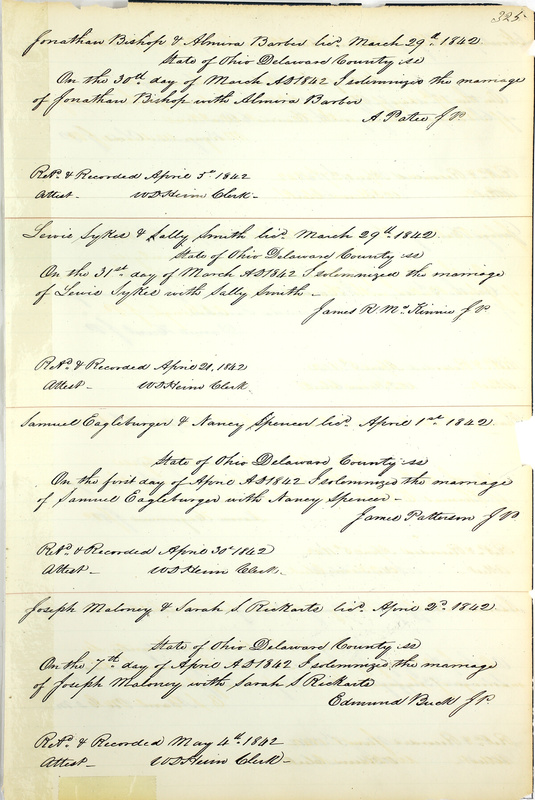 325
Jonathan Bishop & Almira Barber licd. March 29th. 1842
State of Ohio Delaware County ss
On the 30th day of March AD1842 I solemnized the marriage
of Jonathan Bishop with Almira Barber
A Patee J P.
Retd. & Recorded April 5th 1842
Attest - W D Heim Clerk -
Lewis Sykes & Sally Smith licd. March 29th. 1842
State of Ohio Delaware County ss
On the 31st day of March AD1842 I solemnized the marriage
of Lewis Sykes with Sally Smith -
James R Mc.Kinnie J P
Retd. & Recorded April 21, 1842
Attest - W D Heim Clerk
Samuel Eagleburger & Nancy Spencer licd. April 1st 1842
State of Ohio Delaware County ss
On the first day of April AD1842 I solemnized the marriage
of Samuel Eagleburger with Nancy Spencer -
James Patterson J P.
Retd. & Recorded April 30th 1842
Attest - W D Heim Clerk -
Joseph Maloney & Sarah S Rickarts licd. April 2d. 1842
State of Ohio Delaware County ss
On the 7th day of April AD1842 I solemnized the marriage
of Joseph Maloney with Sarah S Rickarts
Edmund Buck J P.
Retd. & Recorded May 4th. 1842
Attest - W D Heim Clerk -